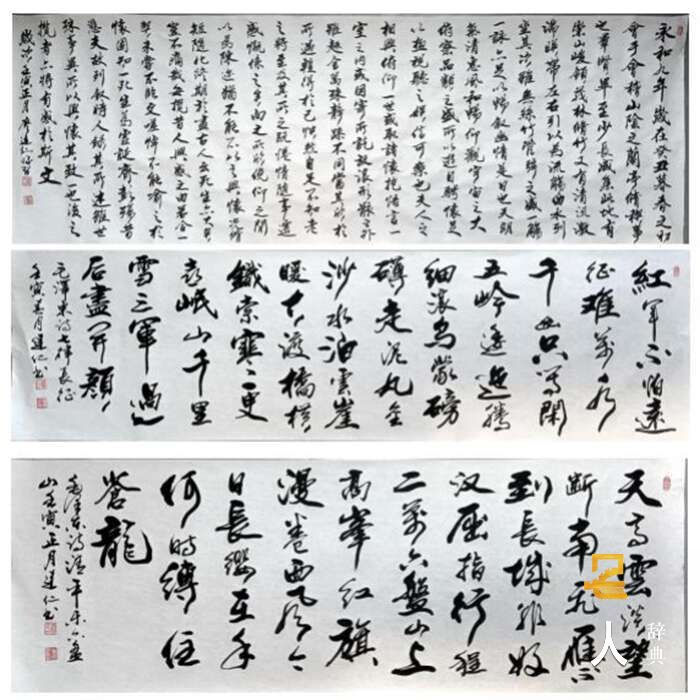 永和九年歲在癸丑暮春之初
會于會稽山陰之蘭亭脩稧事
也群賢畢至少長咸集此地有
崇山峻領茂林脩竹又有清流激
湍暎帶左右引以為流觴曲水列
坐其次雖無絲竹管絃之盛一觴
一詠亦足以暢敘幽情是日也天朗
氣清惠風和暢仰觀宇宙之大
俯察品類之盛所以遊目騁懷足
以極視聽之娛信可樂也夫人之
相與俯仰一世或取諸懷抱悟言一
室之內或因寄所託放浪形骸之外
雖趣舍萬殊靜躁不同當其欣於
所遇暫得於己快然自足不知老
之將至及其所之既惓情隨事遷
感慨係之矣向之所欣俛仰之間
以為陳迹猶不能不以之興懷況脩
短隨化終期於盡古人云死生亦大矣
豈不痛哉每攬昔人興感之由若合一
契未嘗不臨文嗟悼不能喻之於
懷固知一死生為虛誕齊彭殤為妄
悲夫故列敘時人錄其所述雖世
殊事異所以興懷其致一也後之
攬者亦將有感於斯文
歲次壬寅正月建仁書
紅軍不怕遠
征難萬水
千山只等閑
五岭逶迤腾
細浪烏蒙磅
礴走泥丸金
沙水拍雲崖
暖大渡橋横
鐵索寒更
喜岷山千里
雪三軍過
后盡开顏
毛澤東詩七律長征
壬寅春月建仁书
天高雲淡望
斷南飞雁不
到長城非好
汉屈指行程
二萬六盤山上
高峯红旗
漫卷西风今
日長纓在手
何時縛住
苍龍
毛澤东詩清平乐六盘
山壬寅正月建仁书
人
辞典